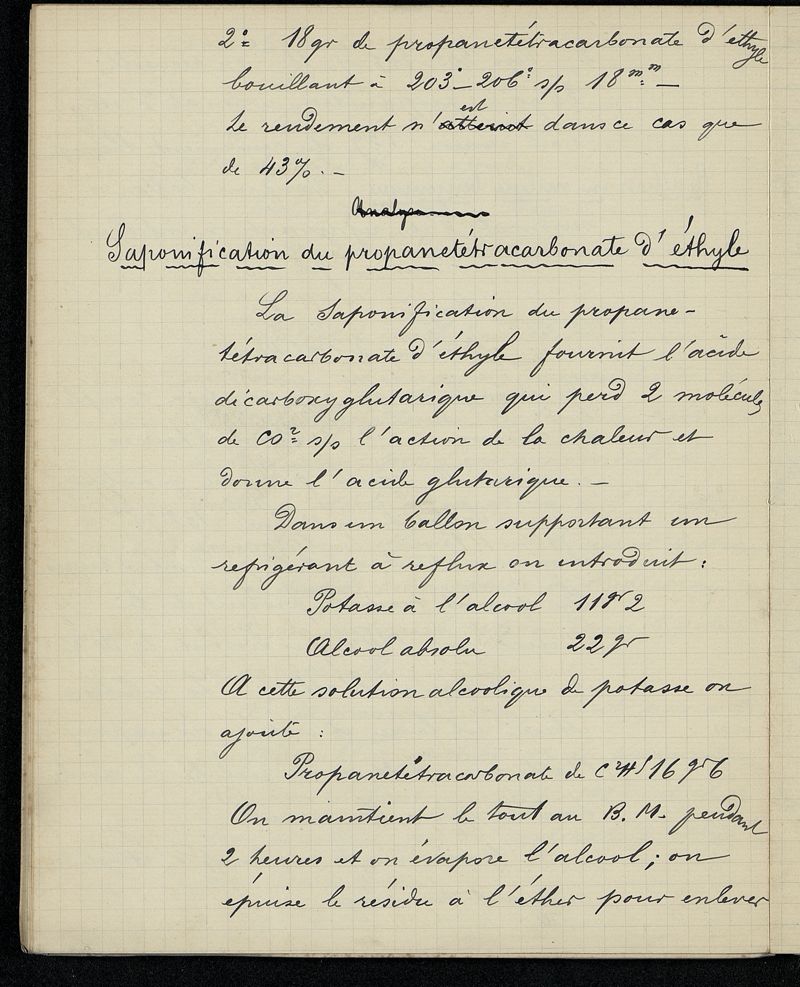 2º 18gr de propanetétracarbonate d'éthyle
bouillant à 203º-206º s/s 18mm. -
Le rendement n'est atteint dans ce cas que
de 43%. -
Analyse
Saponification du propanetétracarbonate d'éthyle
La Saponification du propane-
tétracarbonate d'éthyle fournit l'acide
dicarboxyglutarique qui perd 2 molécules
de CO² s/s l'action de la chaleur et
donne l'acide glutarique. -
Dans un ballon supportant un
refrigérant à reflux on introduit :
Potasse à l'alcool 11gr2
Alcool absolu 22gr
A cette solution alcoolique de potasse on
ajoute :
Propanetétracarbonate de C²H⁵ 16gr6
On maintient le tout au B.M. pendant
2 heures et on évapore l'alcool ; on
épuise le résidu à l'éther pour enlever